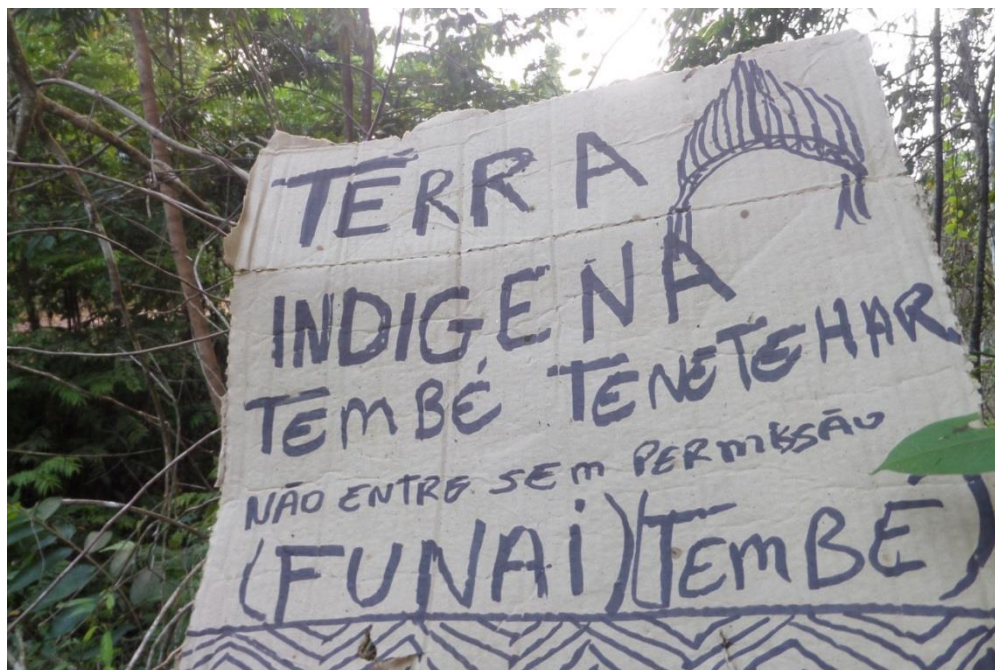 TERRA
INDIGENA
TEMBÉ TENETEHAR
NÃO ENTRE SEM PERMISSÃO
(FUNAi) (TEmBÉ)